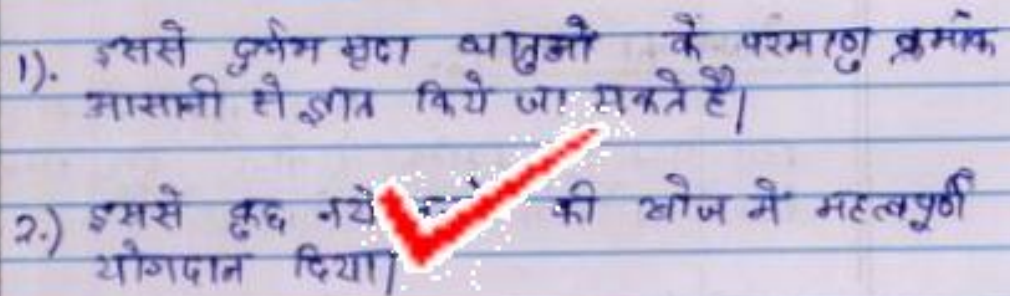 1). इससे दुर्लभ मृदा धातुओं के परमाणु क्रमांक
आसानी से ज्ञात किये जा सकते है।
2.) इससे कुछ नये की खोज में महत्वपूर्ण
योगदान दिया।